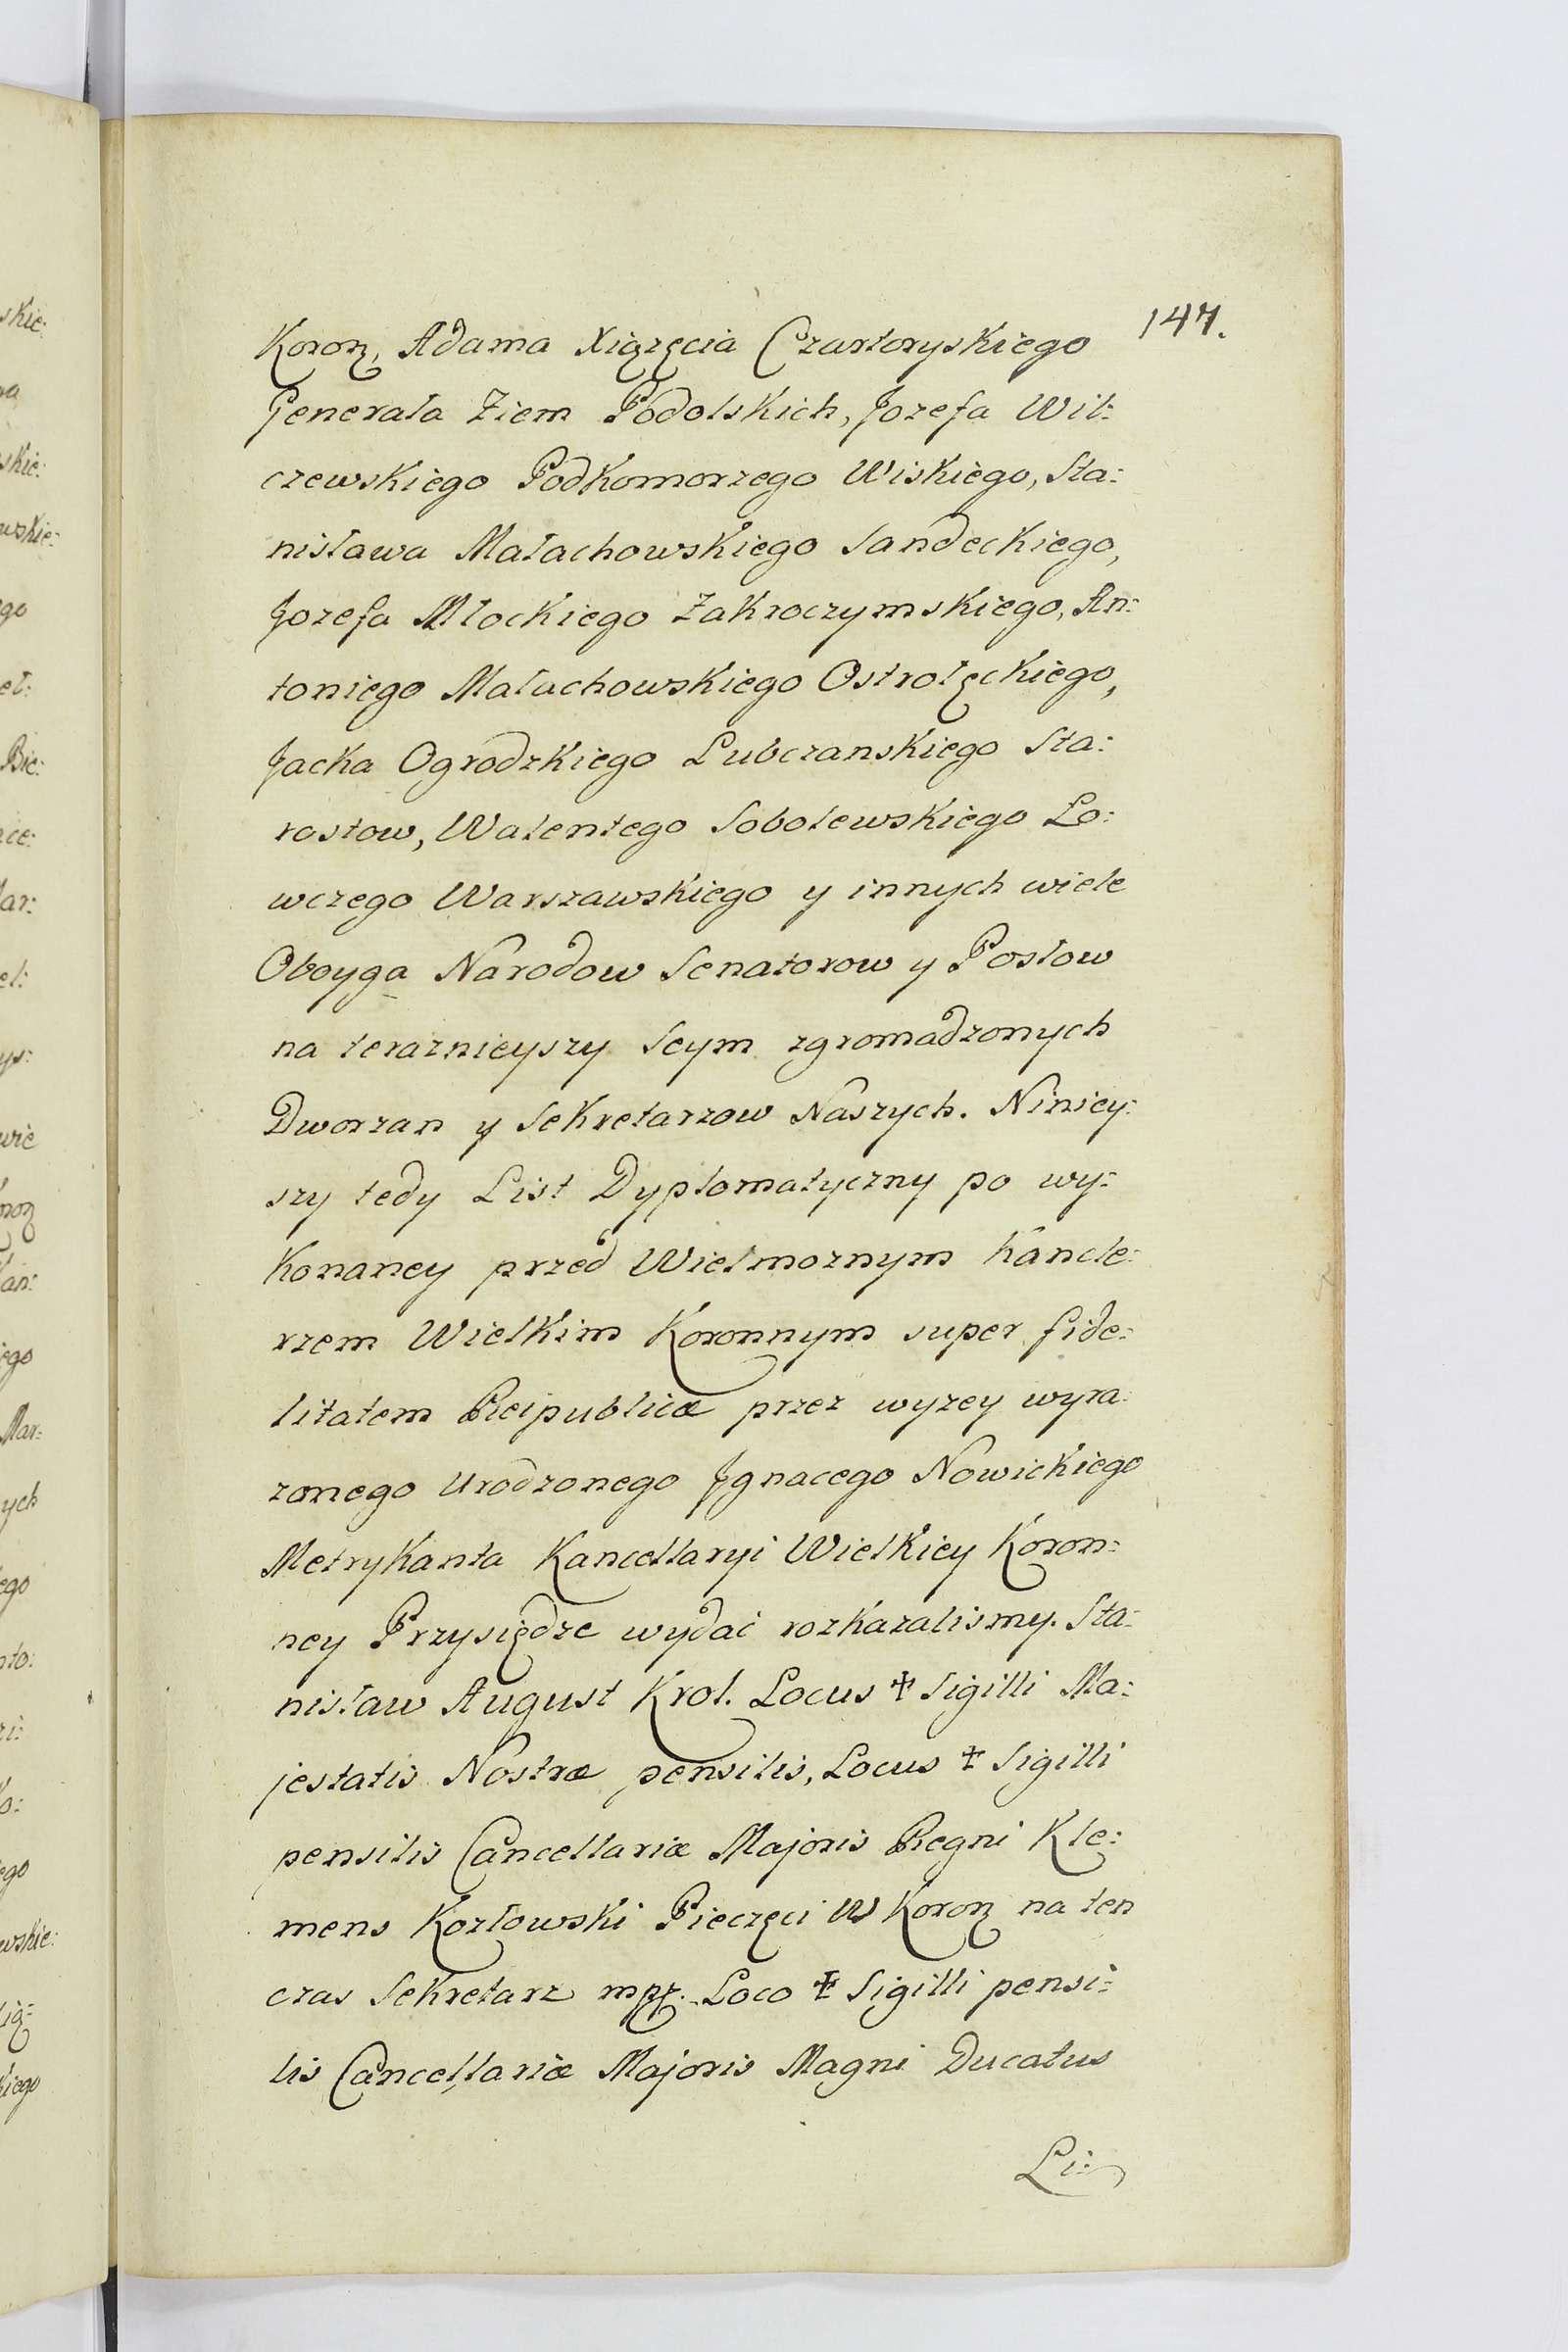 147.
Koron, Adama Xiązęcia Czartoryskiego
Generała Ziem Podolskich, Jozefa Wil:
czewskiego Podkomorzego Wiskiego, Sta:
nisława Małachowskiego Sandeckiego,
Jozefa Młockiego Zakroczymskiego, An:
toniego Małachowskiego Ostrołęckiego,
Jacka Ogrodzkiego Lubczanskiego Sta:
rostow, Walentego Sobolewskiego Ło:
wczego Warszawskiego y innych wiele
Oboyga Narodow Senatorow y Posłow
na teraznieyszy Seym zgromadzonych
Dworzan y Sekretarzow Naszych. Niniey:
szy tedy List Dyplomatyczny po wy:
konaney przed Wielmoznym Kancle:
rzem Wielkim Koronnym super fide:
litatem Reipublicæ przez wyzey wyra:
zonego Urodzonego Jgnacego Nowickiego
Metrykanta Kancellaryi Wielkiey Koron:
ney Przysiędze wydać rozkazalismy. Sta:
nisław August Krol. Locus ✝ Sigilli Ma:
jestatis Nostræ pensilis, Locus ✝ Sigilli
pensilis Cancellariæ Majoris Regni Kle:
mens Kozłowski Pieczęci W Koron na ten
czas Sekretarz mpp. Loco ✝ Sigilli pensi:
lis Cancellariæ Majoris Magni Ducatus
Li: